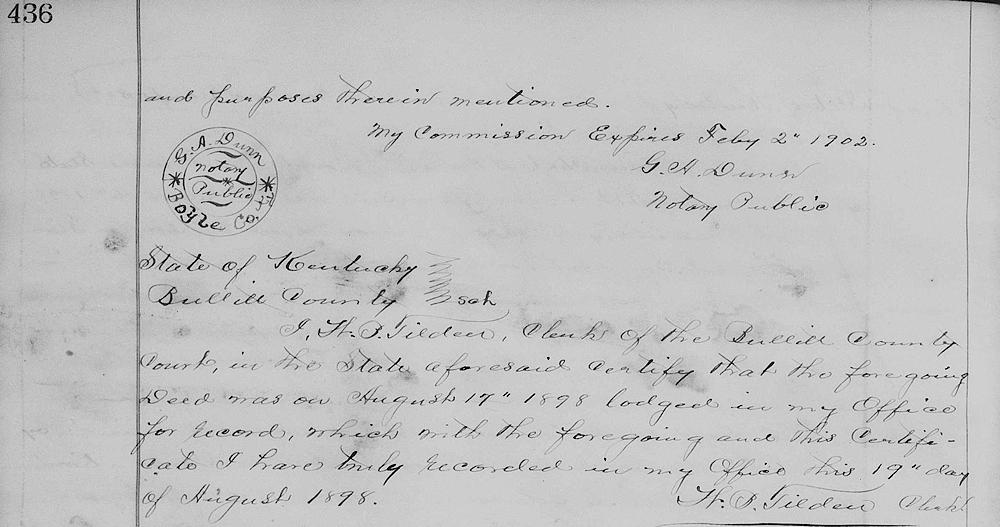 436
and purposes therein mentioned.
My Commission Expires Feby 2" 1902.
G. A. Dunn
Notary Public
G. A. Dunn
Notary
Public
Boyle Co.
State of Kentucky
Bullitt County
I, H. P. Tilden, Clerk of the Bullitt County
Court, in the State aforesaid certify that the foregoing
Deed was on August 17" 1898 lodged in my Office
for record, which with the foregoing and this Certifi-
cate I have truly recorded in my Office this 19" day
of August 1898.
H. P. Tilden Clerk